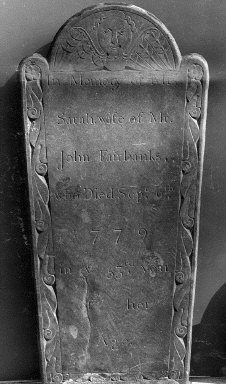 In Memory of Mrs.
Sarah, wife of Mr.
John Fairbanks,
who Died Sept. 6th
1772
in ye 53d. Year
of her
Age.